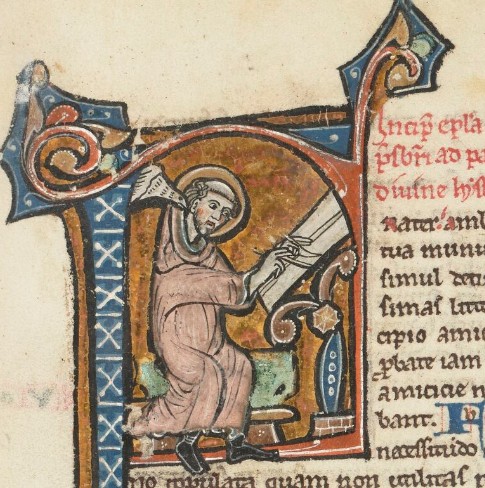 Incip̄ ep̄la
p̄sbr̄i ad pa
diuine hyst
Rater amb
tua munu
simul det
simas litt
cipio amic
ꝓbate iam
amicicie n
bant.
necessitudo
copulata quam non utilitas r